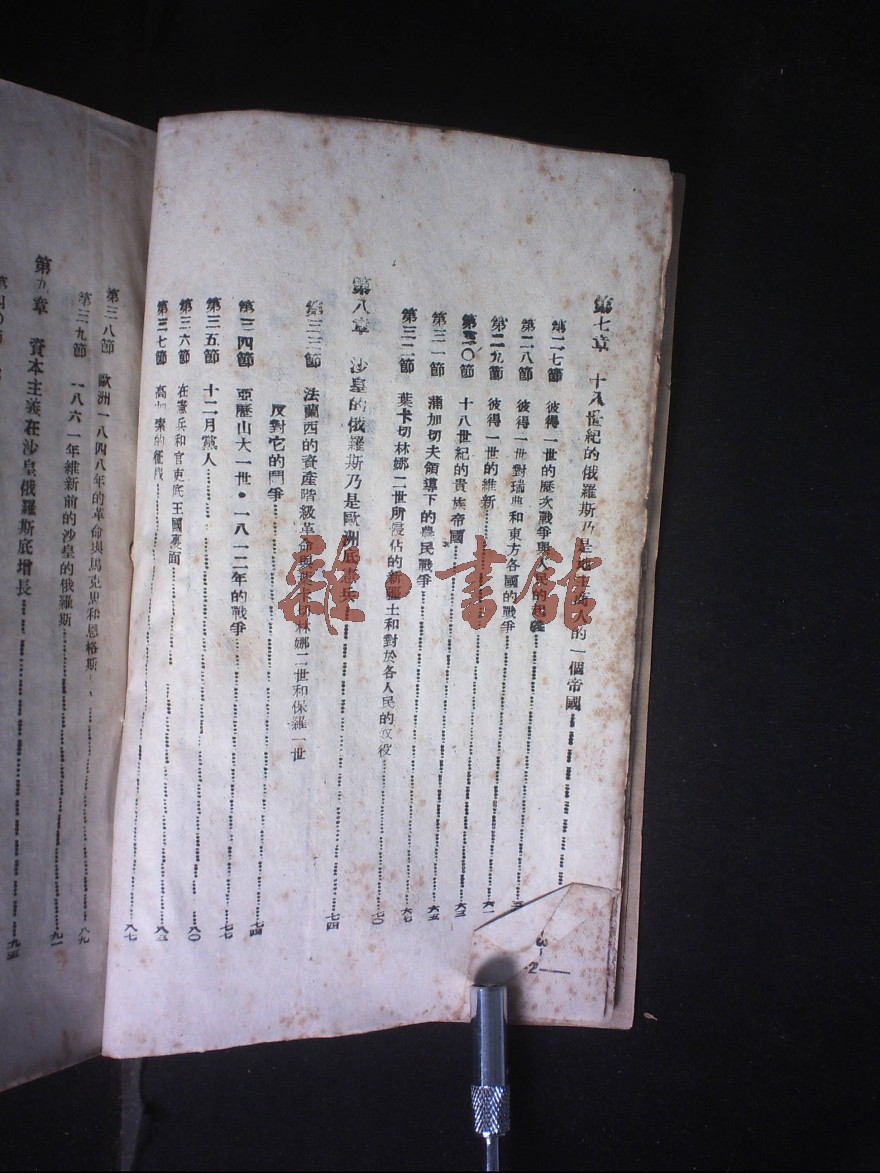 第七章　十八世紀的俄羅斯乃是地主商人的一個帝國
第二七節　彼得一世的歷次戰爭與人民的起義
第二八節　彼得一世對瑞典和東方各國的戰爭
第二九節　彼得一世的維新 六一
第三〇節　十八世紀的貴族帝國 六三
第三一節　蒲加切夫領導下的農民戰爭 六五
第三二節　葉卡切林娜二世所侵佔的新疆土和對於各人民的奴役 七〇
第八章　沙皇的俄羅斯乃是歐洲底憲兵 七四
第三三節　法蘭西的資產階級革命與葉卡切林娜二世和保羅一世
反對它的鬥爭 七四
第三四節　亞歷山大一世・一八一二年的戰爭 七七
第三五節　十二月黨人 八〇
第三六節　在憲兵和官吏底王國裏面 八三
第三七節　高加索的征伐 八七
第三八節　歐洲一八四八年的革命與馬克思和恩格斯 八九
第三九節　一八六一年維新前的沙皇的俄羅斯 九一
第九章　資本主義在沙皇俄羅斯底增長 九五
2
雜・書館